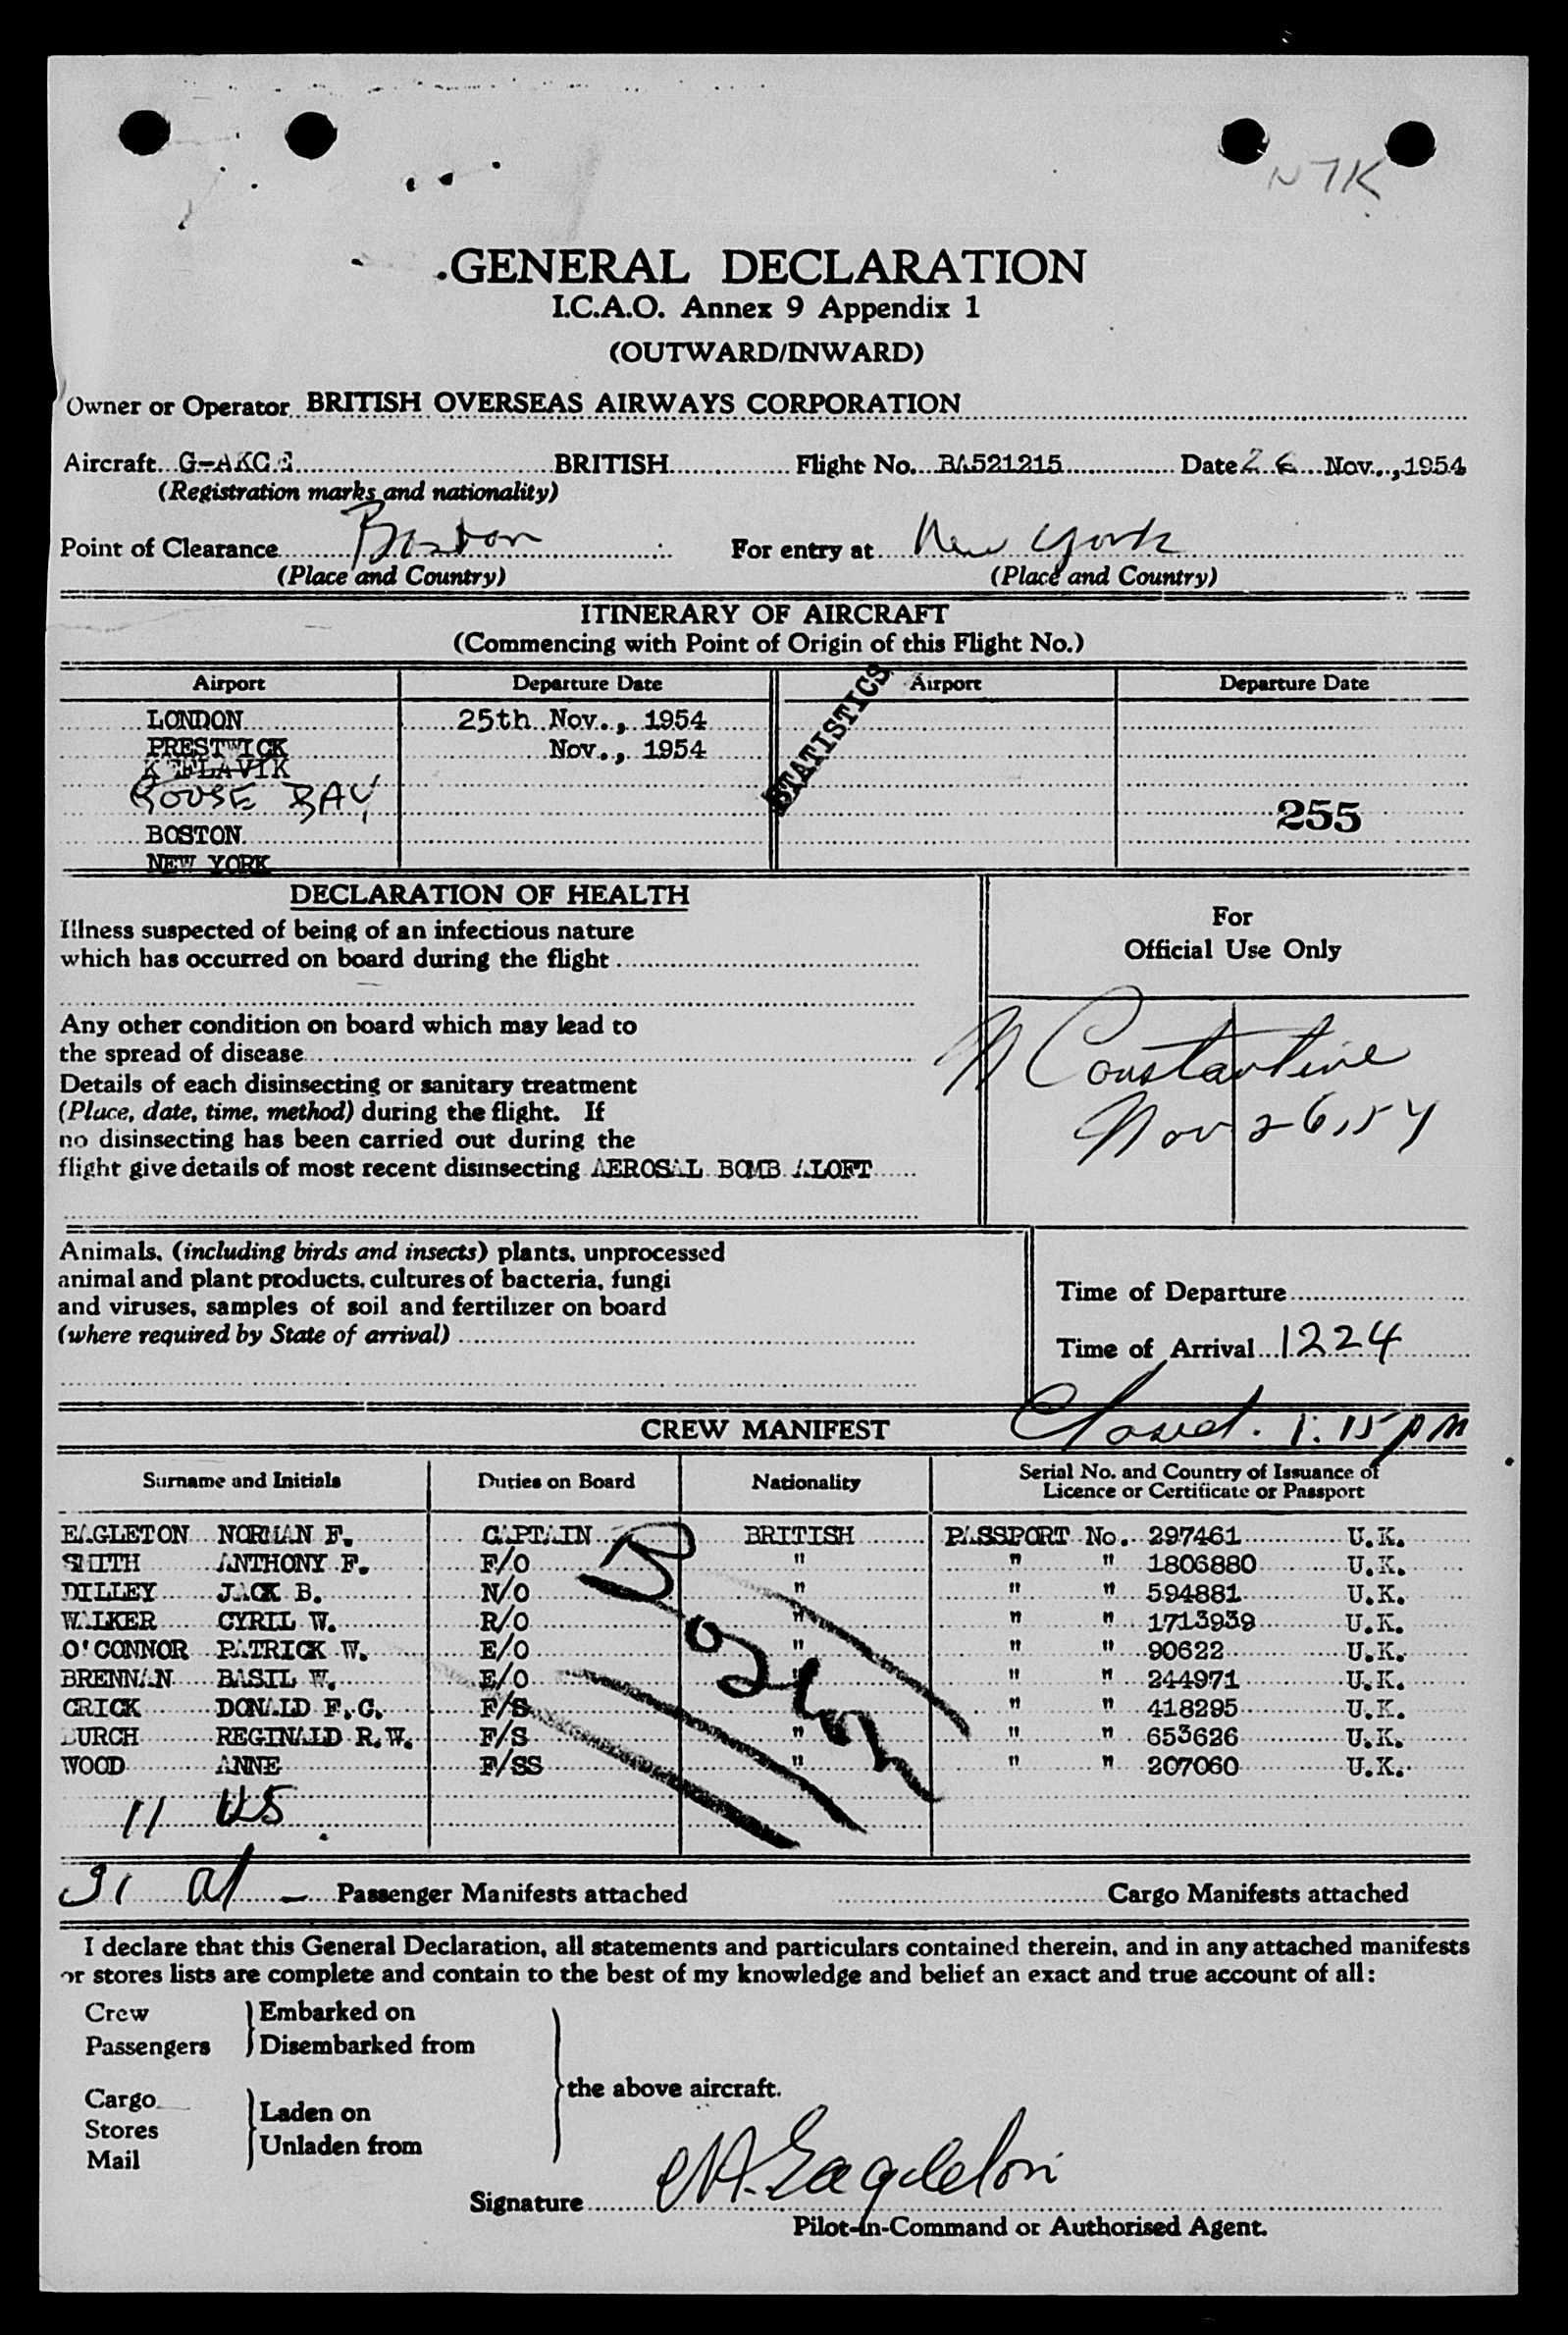 N7K
GENERAL DECLARATION
I.C.A.O. Annex 9 Appendix 1
(OUTWARD/INWARD)
Owner or Operator BRITISH OVERSEAS AIRWAYS CORPORATION
Aircraft BRITISH Flight No. BA521215 Date 26 Nov., 1954
(Registration marks and nationality)
Point of Clearance Boston For entry at New York
(Place and Country) (Place and Country)
ITINERARY OF AIRCRAFT
(Commencing with Point of Origin of this Flight No.)
Airport Departure Date Airport Departure Date
LONDON 25th Nov., 1954
PRESTWICK Nov., 1954
KEFLAVIK
GOOSE BAY
BOSTON
NEW YORK
STATISTICS
255
DECLARATION OF HEALTH
Illness suspected of being of an infectious nature
which has occurred on board during the flight
Any other condition on board which may lead to
the spread of disease
Details of each disinsecting or sanitary treatment
(Place, date, time, method) during the flight. If
no disinsecting has been carried out during the
flight give details of most recent disinsecting AEROSAL BOMB ALOFT
For
Official Use Only
N Constantine
Nov 26, 54
Animals, (including birds and insects) plants, unprocessed
animal and plant products, cultures of bacteria, fungi
and viruses, samples of soil and fertilizer on board
(where required by State of arrival)
Time of Departure
Time of Arrival 1224
Closed. 1:15 pm
CREW MANIFEST
Surname and Initials Duties on Board Nationality Serial No. and Country of Issuance of Licence or Certificate or Passport
EAGLETON NORMAN F. CAPTAIN BRITISH PASSPORT No. 297461 U.K.
SMITH ANTHONY F. F/O " " " 1806880 U.K.
DILLEY JACK B. N/O " " " 594881 U.K.
WALKER CYRIL W. R/O " " " 1713939 U.K.
O'CONNOR PATRICK W. E/O " " " 90622 U.K.
BRENNAN BASIL W. E/O " " " 244971 U.K.
CRICK DONALD F.G. F/S " " 418295 U.K.
BURCH REGINALD R.W. F/S " " " 653626 U.K.
WOOD ANNE F/SS " " " 207060 U.K.
11 US
31 al — Passenger Manifests attached Cargo Manifests attached
I declare that this General Declaration, all statements and particulars contained therein, and in any attached manifests
or stores lists are complete and contain to the best of my knowledge and belief an exact and true account of all:
Crew Embarked on
Passengers Disembarked from
the above aircraft.
Cargo
Stores Laden on
Mail Unladen from
Signature N.F. Eagleton
Pilot-in-Command or Authorised Agent.